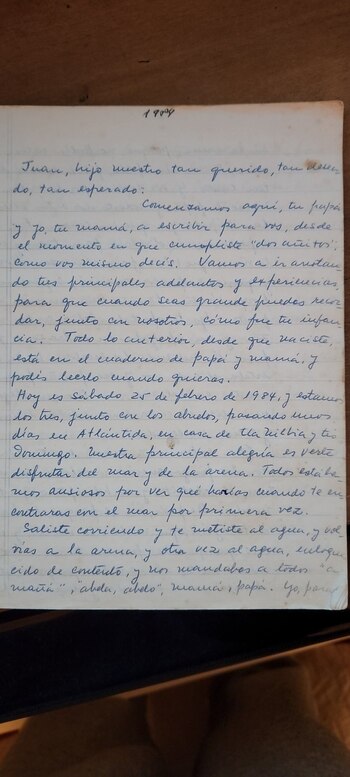 1984
Juan, hijo nuestro tan querido, tan desea-
do, tan esperado:
Comenzamos aquí, tu papá
y yo, tu mamá, a escribir para vos, desde
el momento en que cumpliste "dos añitos",
como vos mismo decís. Vamos a ir anotan-
do tus principales adelantos y experiencias,
para que cuando seas grande puedas recor-
dar, junto con nosotros, cómo fue tu infan-
cia. Todo lo anterior, desde que naciste,
está en el cuaderno de papá y mamá, y
podés leerlo cuando quieras.
Hoy es sábado 25 de febrero de 1984, y estamos
los tres, junto con los abuelos, pasando unos
días en Atlántida, en casa de tía Nilbia y tío
Domingo. Nuestra principal alegría es verte
disfrutar del mar y de la arena. Todos estába-
mos ansiosos por ver qué harías cuando te en-
contraras con el mar por primera vez.
Saliste corriendo y te metiste al agua, y vol-
vías a la arena, y otra vez al agua, enloque-
cido de contento, y nos mandabas a todos "a
mañá", "abda, abdo", mamá, papá. Yo, para